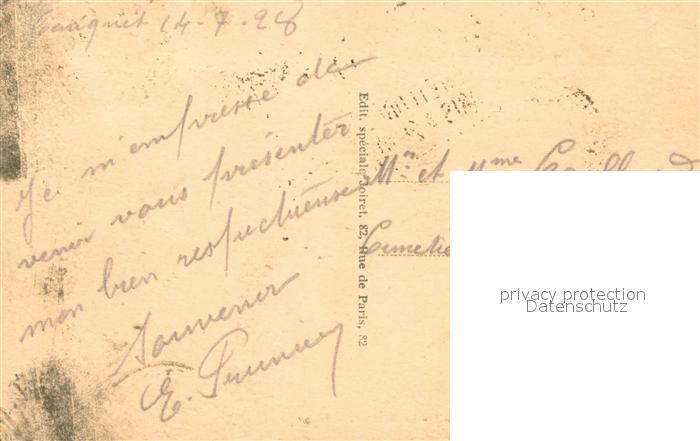 Touquet 14-7.28
Je m'empresse de
venir vous présenter
mon bien respectueuse
Souvenir
E. Prunier
Edit. spéciale Joiret, 82, Rue de Paris, 82
Mr et Mme
privacy protection
Datenschutz